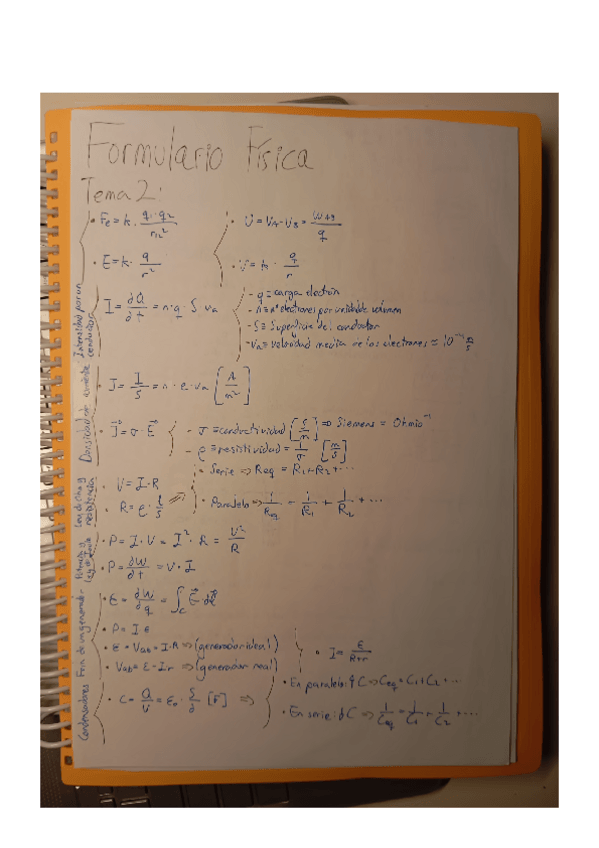 Formulario Física
Tema 2:
• Fe = k · q1 · q2 / r12²
• U = VA - VB = WAB / q
• E = k · q / r²
• V = k · q / r
Intensidad por un conductor
I = ∂Q / ∂t = n · q · S · va
- q = carga electrón
- n ≡ nº electrones por unidad de volumen
- S ≡ Superficie del conductor
- va ≡ velocidad media de los electrones ≈ 10⁻⁴ m/s
Densidad de corriente
• J = I / S = n · e · va [A / m²]
• J⃗ = σ · E⃗
- σ ≡ conductividad [S / m] ⇒ Siemens = Ohmio⁻¹
- ρ ≡ resistividad = 1 / σ [m / S]
Ley de Ohm y resistencia
• V = I · R
• R = ρ · l / S ⇒
• Serie ⇒ Req = R1 + R2 + ...
• Paralelo ⇒ 1 / Req = 1 / R1 + 1 / R2 + ...
Potencia y Ley de Joule
• P = I · V = I² · R = V² / R
• P = ∂W / ∂t = V · I
Fem de un generador
• ε = ∂W / ∂q = ∫C E⃗ · dl⃗
• P = I ε
• ε = Vab = I · R ⇒ (generador ideal)
• Vab = ε - Ir ⇒ (generador real)
• I = ε / R+r
Condensadores
• C = Q / V = ε0 · S / d [F] ⇒
• En paralelo: ↑ C ⇒ Ceq = C1 + C2 ...
• En serie: ↓ C ⇒ 1 / Ceq = 1 / C1 + 1 / C2 + ...